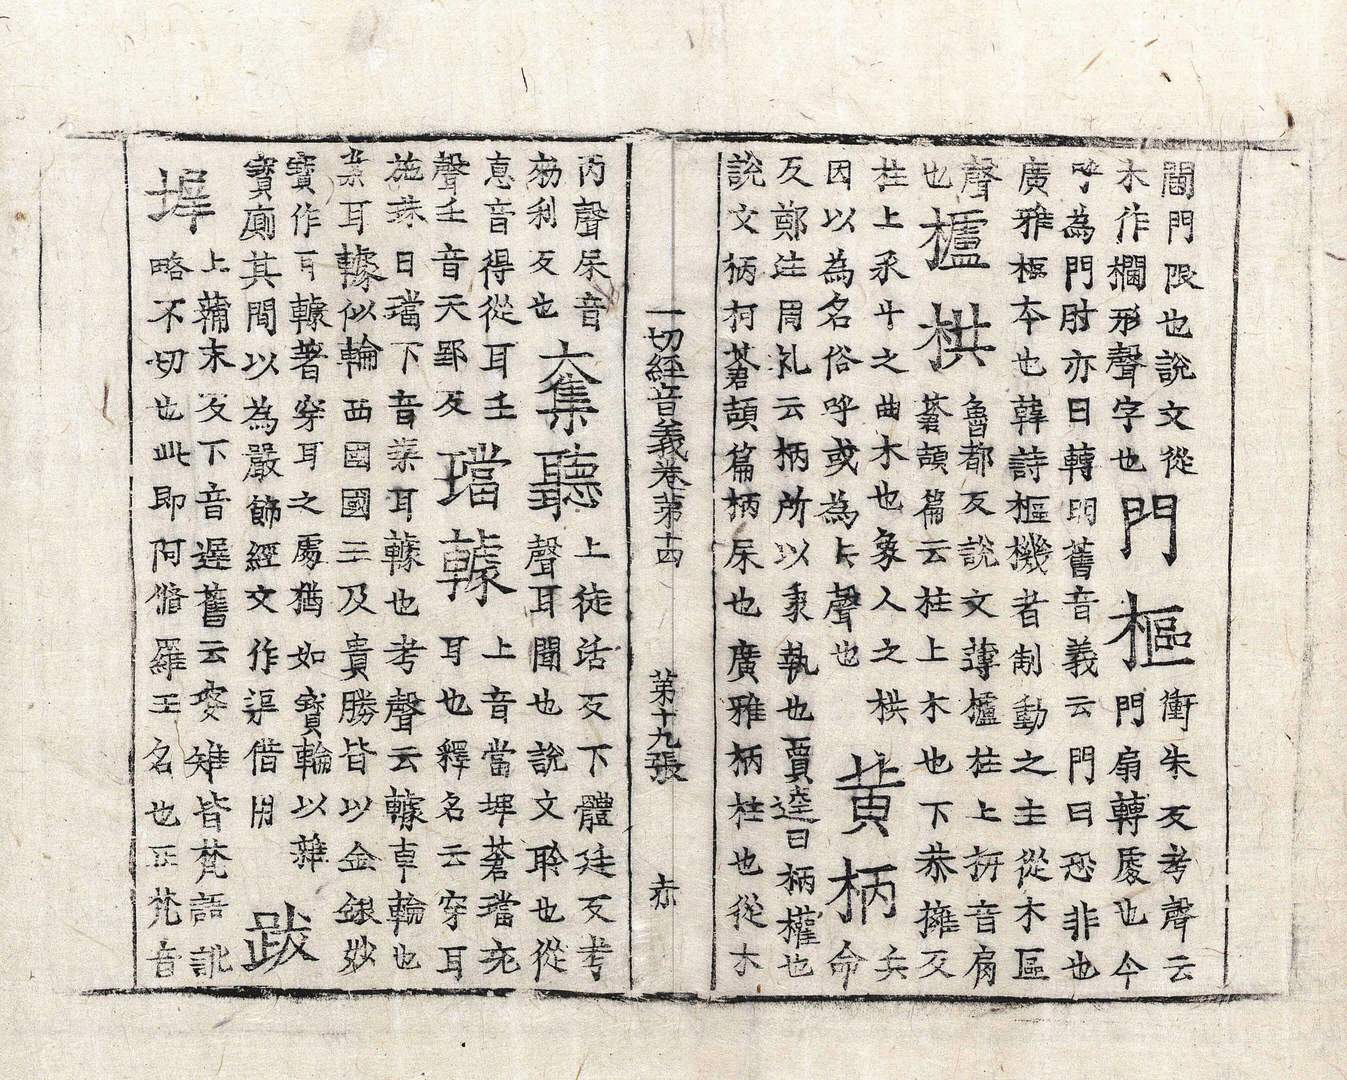 閫門限也說文從
木作梱形聲字也門樞衝朱反考聲云
門扇轉處也今
呼為門肘亦曰轉明舊音義云門曰恐非也
廣雅樞本也韓詩樞機者制動之主從木區
聲
也櫨栱魯都反說文薄櫨柱上枅音肩
蒼頡篇云柱上木也下恭擁反
柱上承斗之曲木也象人之栱
因以為名俗呼或為上聲也黄柄兵
命
反鄭注周礼云柄所以秉執也賈逵曰柄權也
說文柄柯蒼頡篇柄杘也廣雅柄柱也從木
一切經音義卷第十四 第十九張 亦
丙聲杘音
勑利反也奪聽上徒活反下體廷反考
聲耳聞也說文聆也從
惪音得從耳壬
聲壬音天郢反璫㯫上音當埤蒼璫充
耳也釋名云穿耳
施珠曰璫下音渠耳㯫也考聲云㯫車輪也
渠耳㯫似輪西國國王及貴勝皆以金銀妙
寶作耳㯫著穿耳之處猶如寶輪以雜
寶廁其間以為嚴飾經文作渠借用跋
墀上蒲末反下音遲舊云婆雉皆梵語訛
略不切也此即阿脩羅王名也正梵音